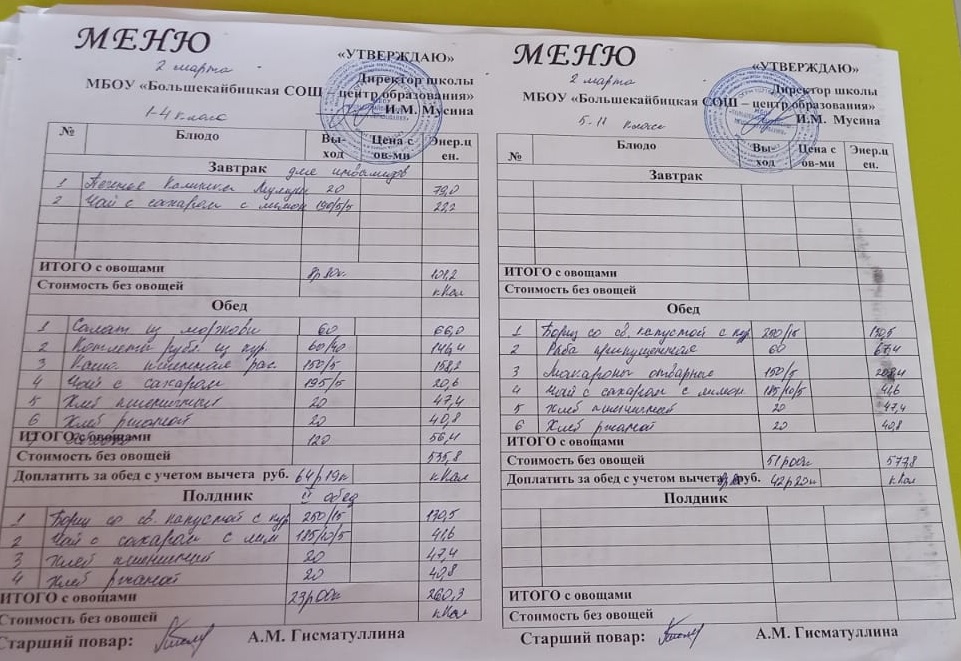 МЕНЮ
2 марта
«УТВЕРЖДАЮ»
Директор школы
МБОУ «Большекайбицкая СОШ – центр образования»
И.М. Мусина
1-4 класс
№ Блюдо Вы-ход Цена с ов-ми Энер.ц ен.
Завтрак для инвалидов
1 Печенье 20 79,0
2 Чай с сахаром с лимон 190/5/5 22,2
ИТОГО с овощами 101,2
Стоимость без овощей кКал
Обед
1 Салат из моркови 60 66,0
2 Котлеты рубл. из кур.
3 Каша пшенная рас. 150/5 158,2
4 Чай с сахаром 195/5 20,6
5 Хлеб пшеничный 20 47,4
6 Хлеб ржаной 20 40,8
ИТОГО с овощами 120 56,4
Стоимость без овощей 535,8
Доплатить за обед с учетом вычета руб. 64р19к кКал
Полдник II обед
1 Борщ со св. капустой с кур 250/15 130,5
2 Чай с сахаром с лим 185/10/5 41,6
3 Хлеб пшеничный 20 47,4
4 Хлеб ржаной 20 40,8
ИТОГО с овощами 23р00к 260,3
Стоимость без овощей кКал
Старший повар: А.М. Гисматуллина
МЕНЮ
2 марта
«УТВЕРЖДАЮ»
Директор школы
МБОУ «Большекайбицкая СОШ – центр образования»
И.М. Мусина
5-11 класс
№ Блюдо Вы-ход Цена с ов-ми Энер.ц ен.
Завтрак
ИТОГО с овощами
Стоимость без овощей
Обед
1 Борщ со св. капустой с кур 250/15 130,5
2 Рыба припущенная 60 67,4
3 Макароны отварные 150/5
4 Чай с сахаром с лимон 185/10/5 41,6
5 Хлеб пшеничный 20 47,4
6 Хлеб ржаной 20 40,8
ИТОГО с овощами
Стоимость без овощей 51р00к 577,8
Доплатить за обед с учетом вычета руб. 42р20к кКал
Полдник
ИТОГО с овощами
Стоимость без овощей
Старший повар: А.М. Гисматуллина